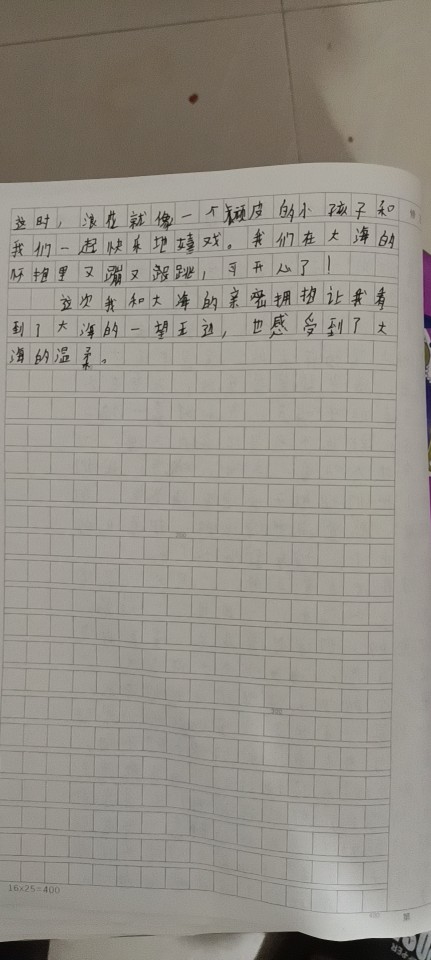 这时，浪花就像一个顽皮的小孩子和
我们一起快乐地嬉戏。我们在大海的
怀抱里又蹦又跳，可开心了！
这次我和大海的亲密拥抱让我看
到了大海的一望无边，也感受到了大
海的温柔。
16x25=400
第